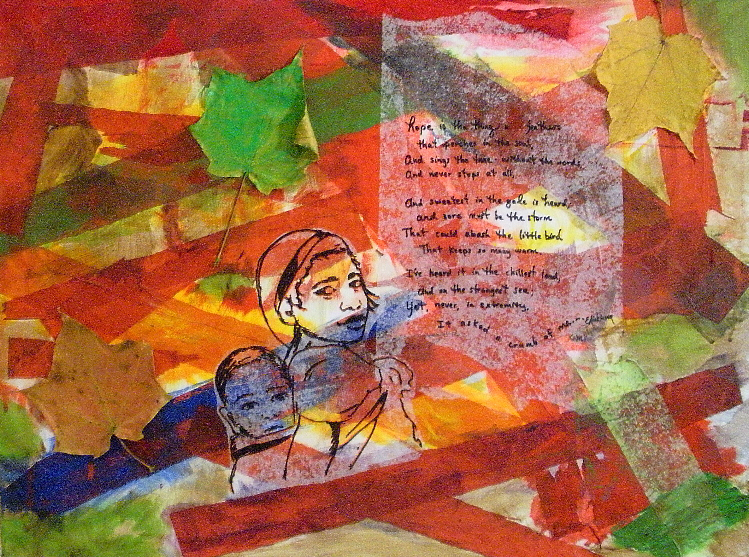 Hope is the thing w feathers
that perches in the soul,
And sings the tune without the words,
And never stops at all,
And sweetest in the gale is heard;
and sore must be the storm
That could abash the little bird
That keeps so many warm.
I've heard it in the chillest land,
And on the strangest sea;
Yet, never, in extremity,
It asked a crumb of me.